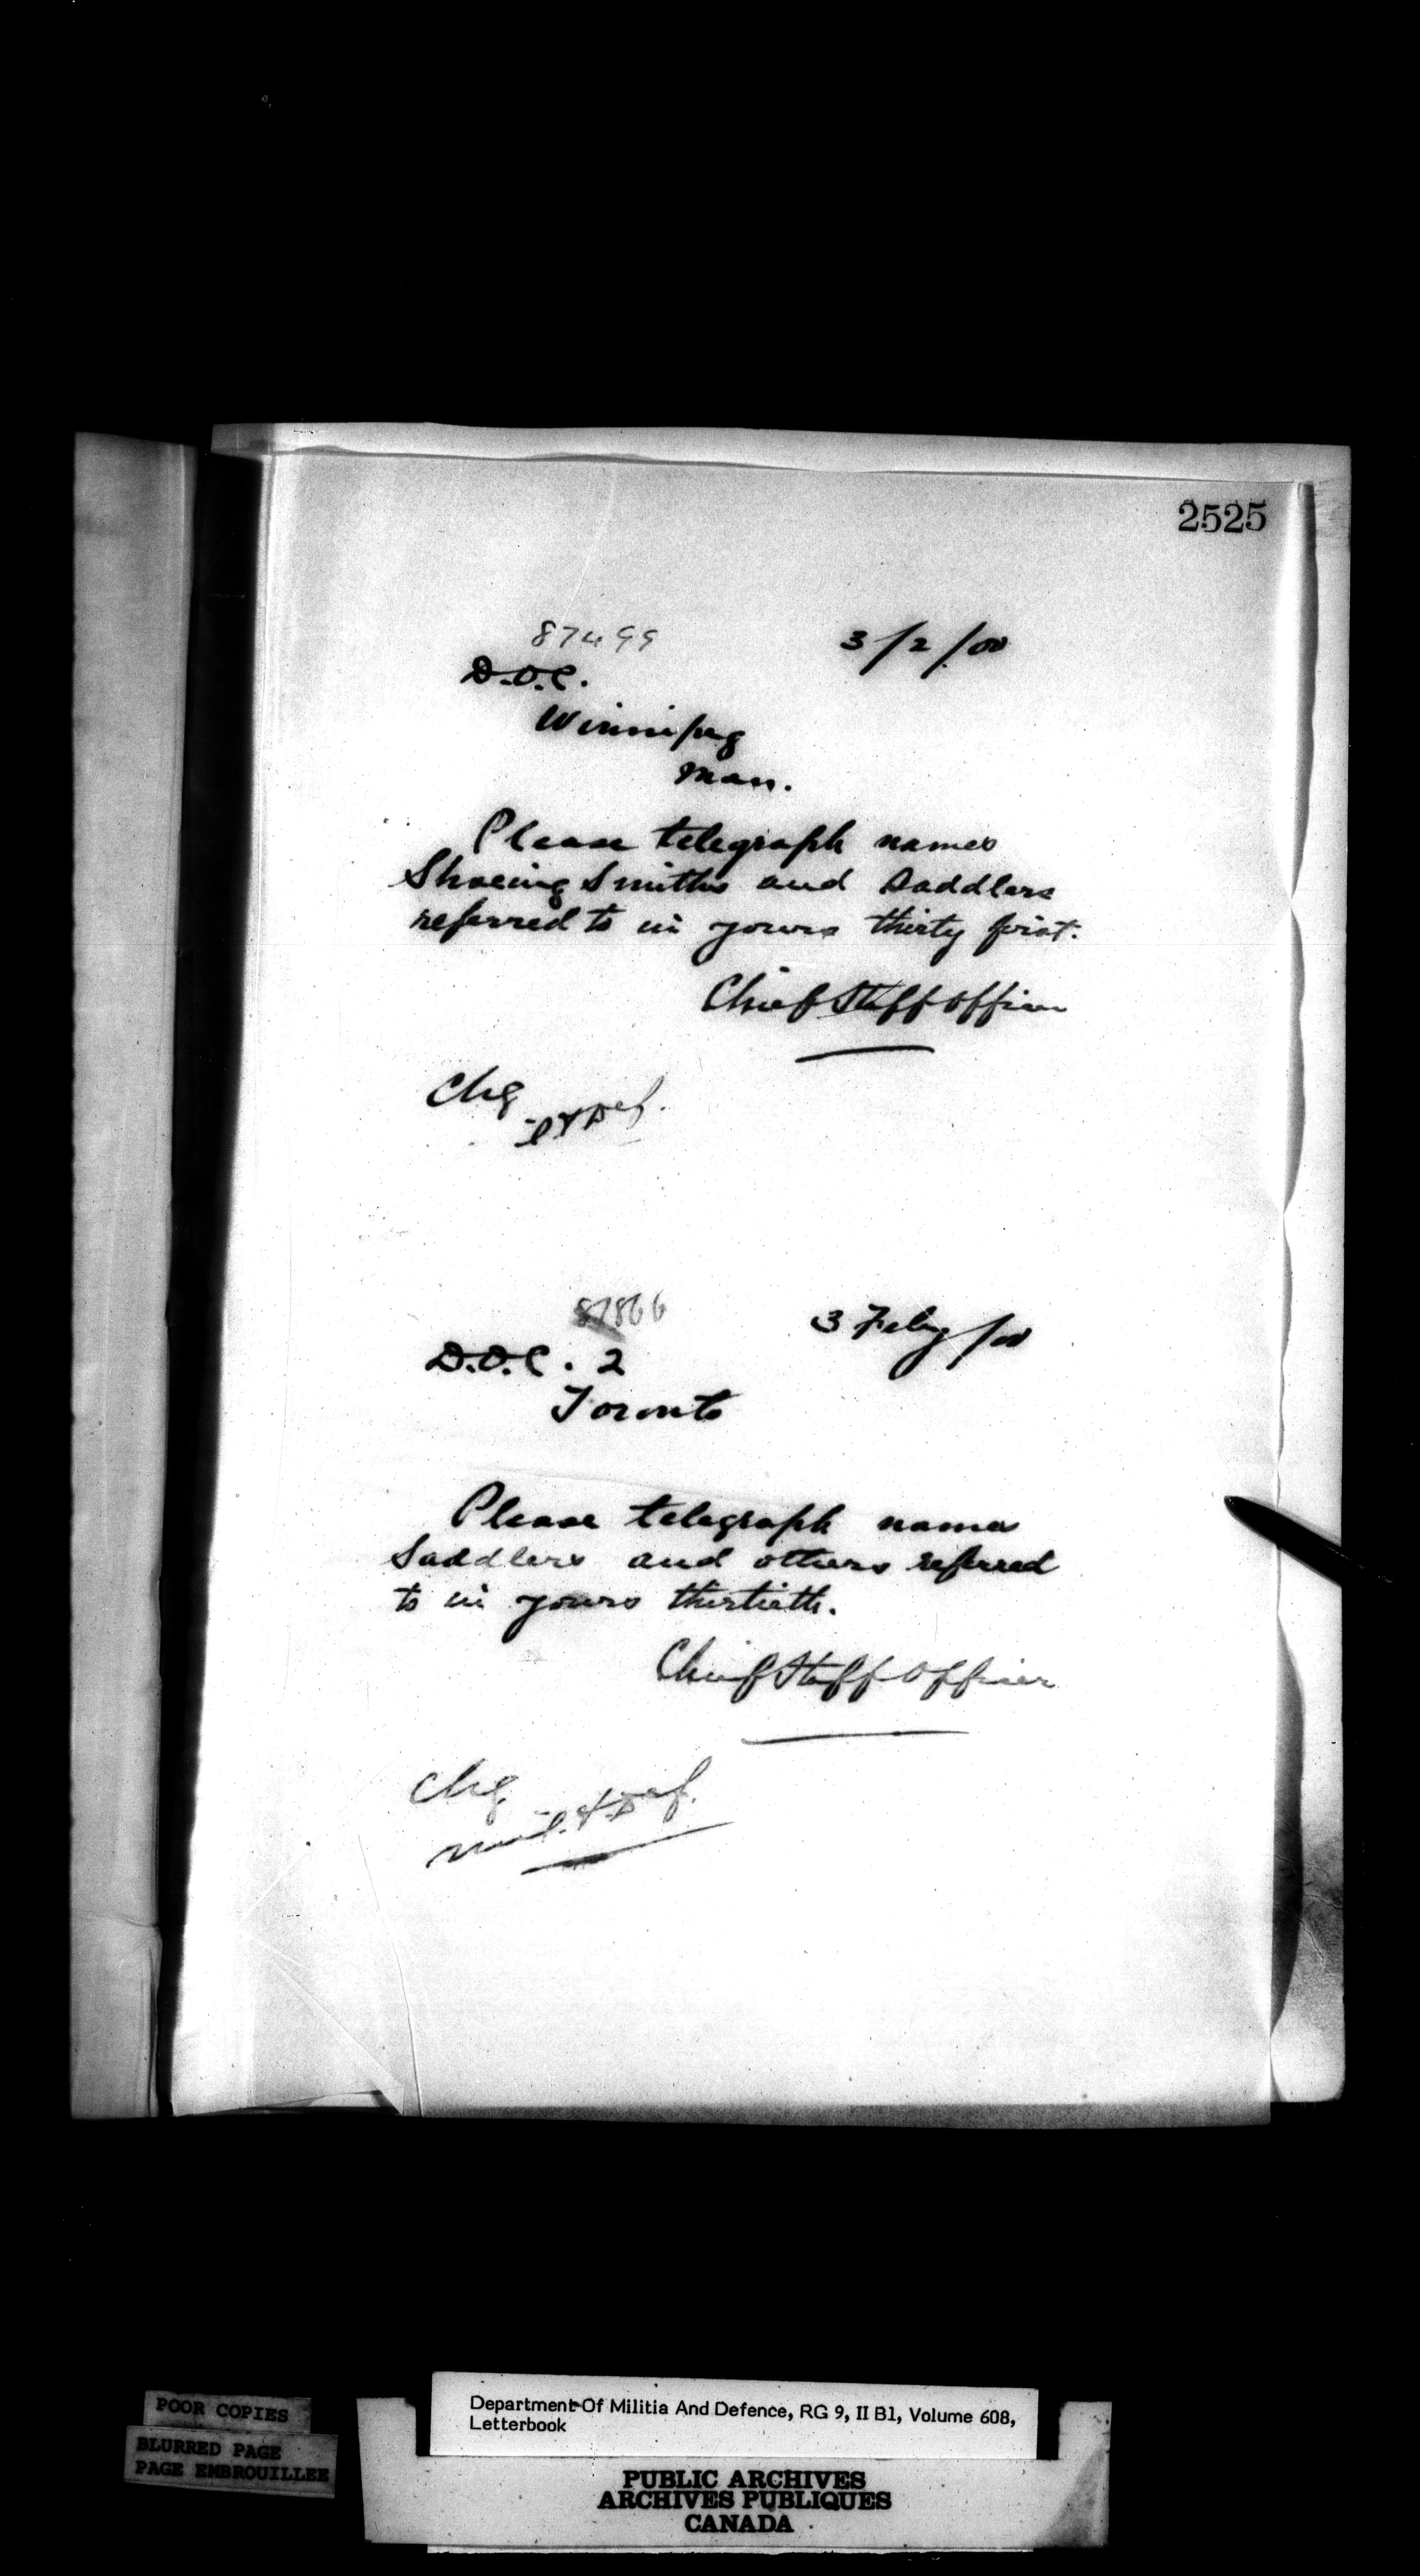 2525
87499
3/2/00
D.O.C.
Winnipeg
Man.
Please telegraph names
Shoeing Smiths and Saddlers
referred to in yours thirty first.
Chief Staff Officer
Chg
& Def.
87866
3 Feby/00
D.O.C. 2
Toronto
Please telegraph names
Saddlers and others referred
to in yours thirtieth.
Chief Staff Officer
Chg
Mil. & Def.
POOR COPIES
BLURRED PAGE
PAGE EMBROUILLEE
Department Of Militia And Defence, RG 9, II B1, Volume 608,
Letterbook
PUBLIC ARCHIVES
ARCHIVES PUBLIQUES
CANADA